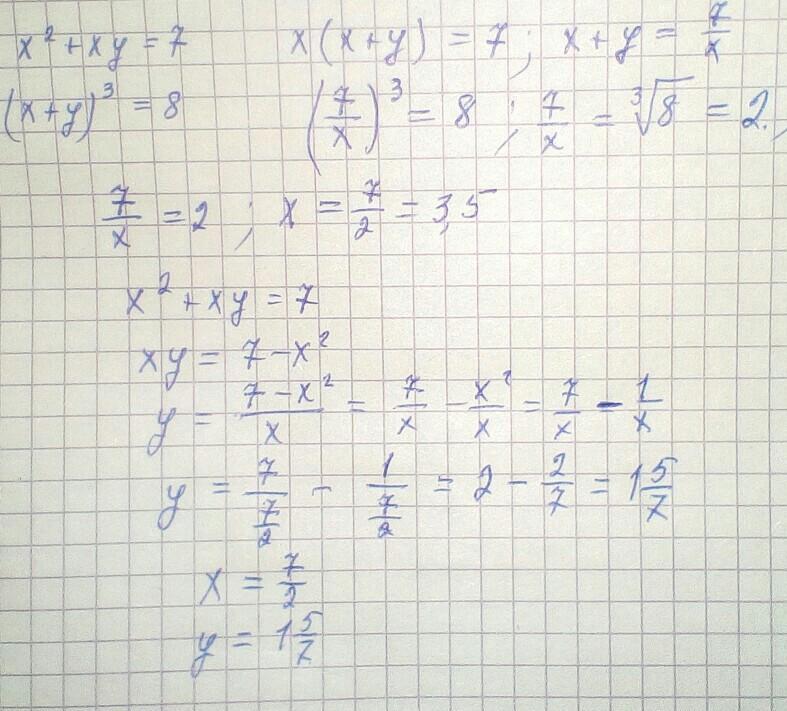 x² + xy = 7 x(x+y) = 7; x+y = 7/x
(x+y)³ = 8 (7/x)³ = 8; 7/x = ∛8 = 2.,
7/x = 2; x = 7/2 = 3,5
x² + xy = 7
xy = 7 - x²
y = (7 - x²)/x = 7/x - x²/x = 7/x - 1/x
y = 7/(7/2) - 1/(7/2) = 2 - 2/7 = 1 5/7
x = 7/2
y = 1 5/7